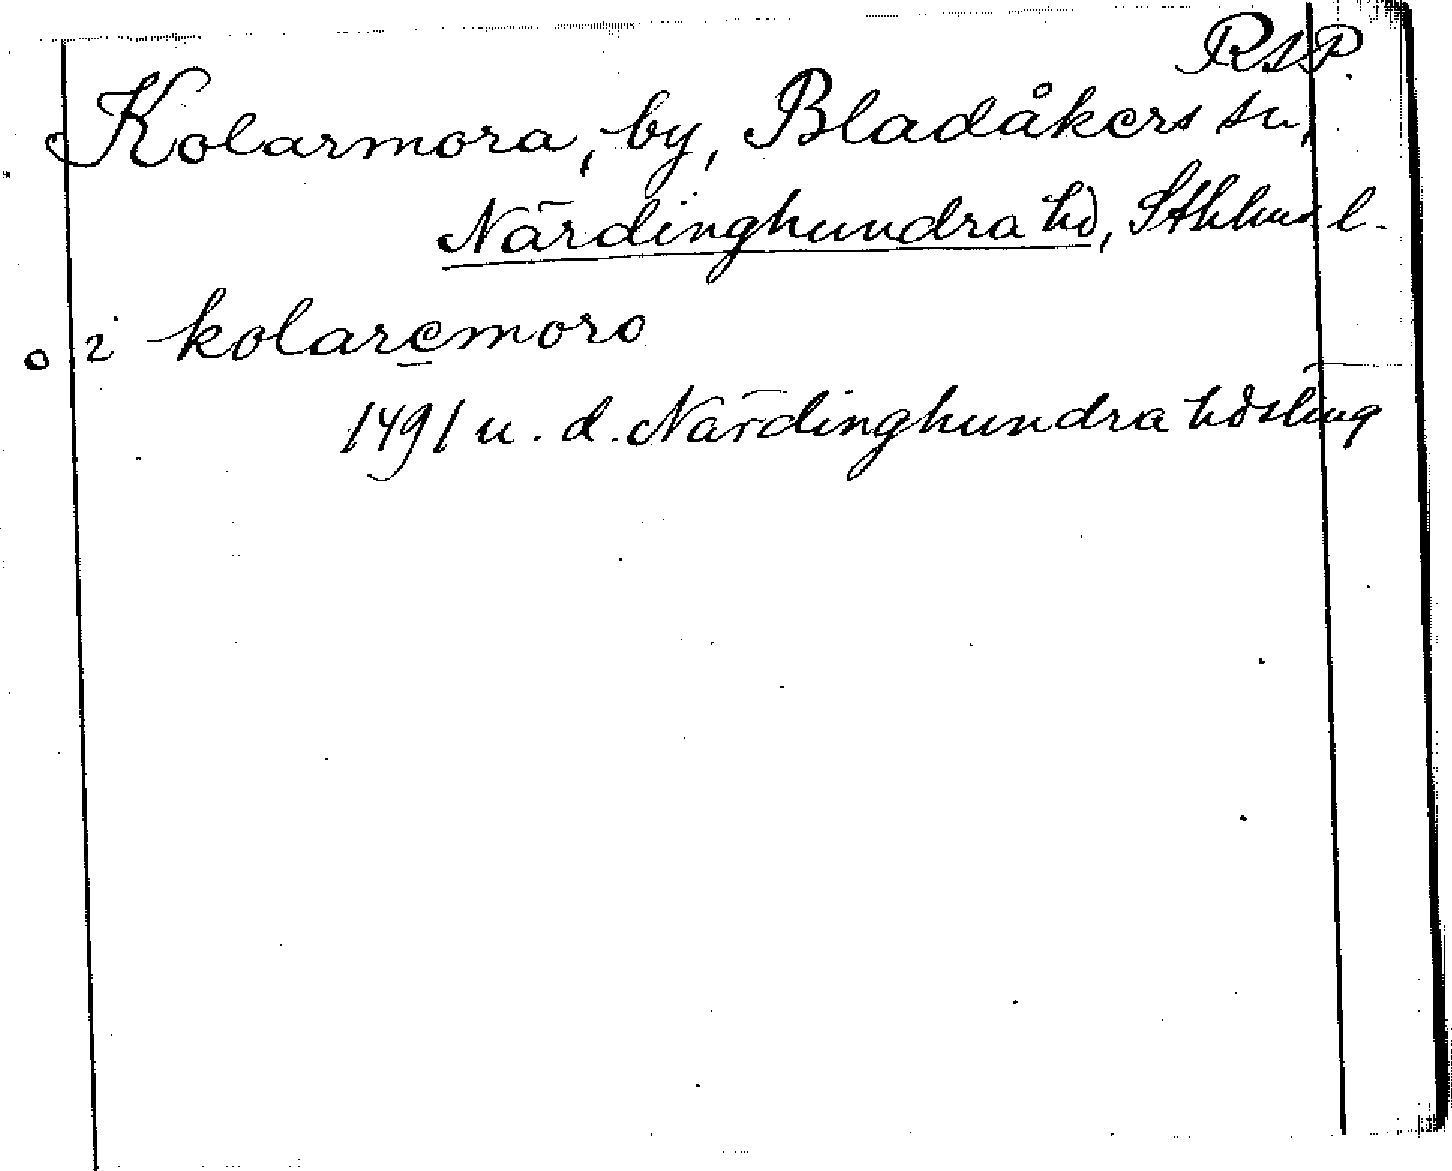 RAP.
Kolarmora, by, Bladåkers sn,
Närdinghundra hd, Sthlms l.
i kolaremoro
1491 u. d. Närdinghundra hdsting